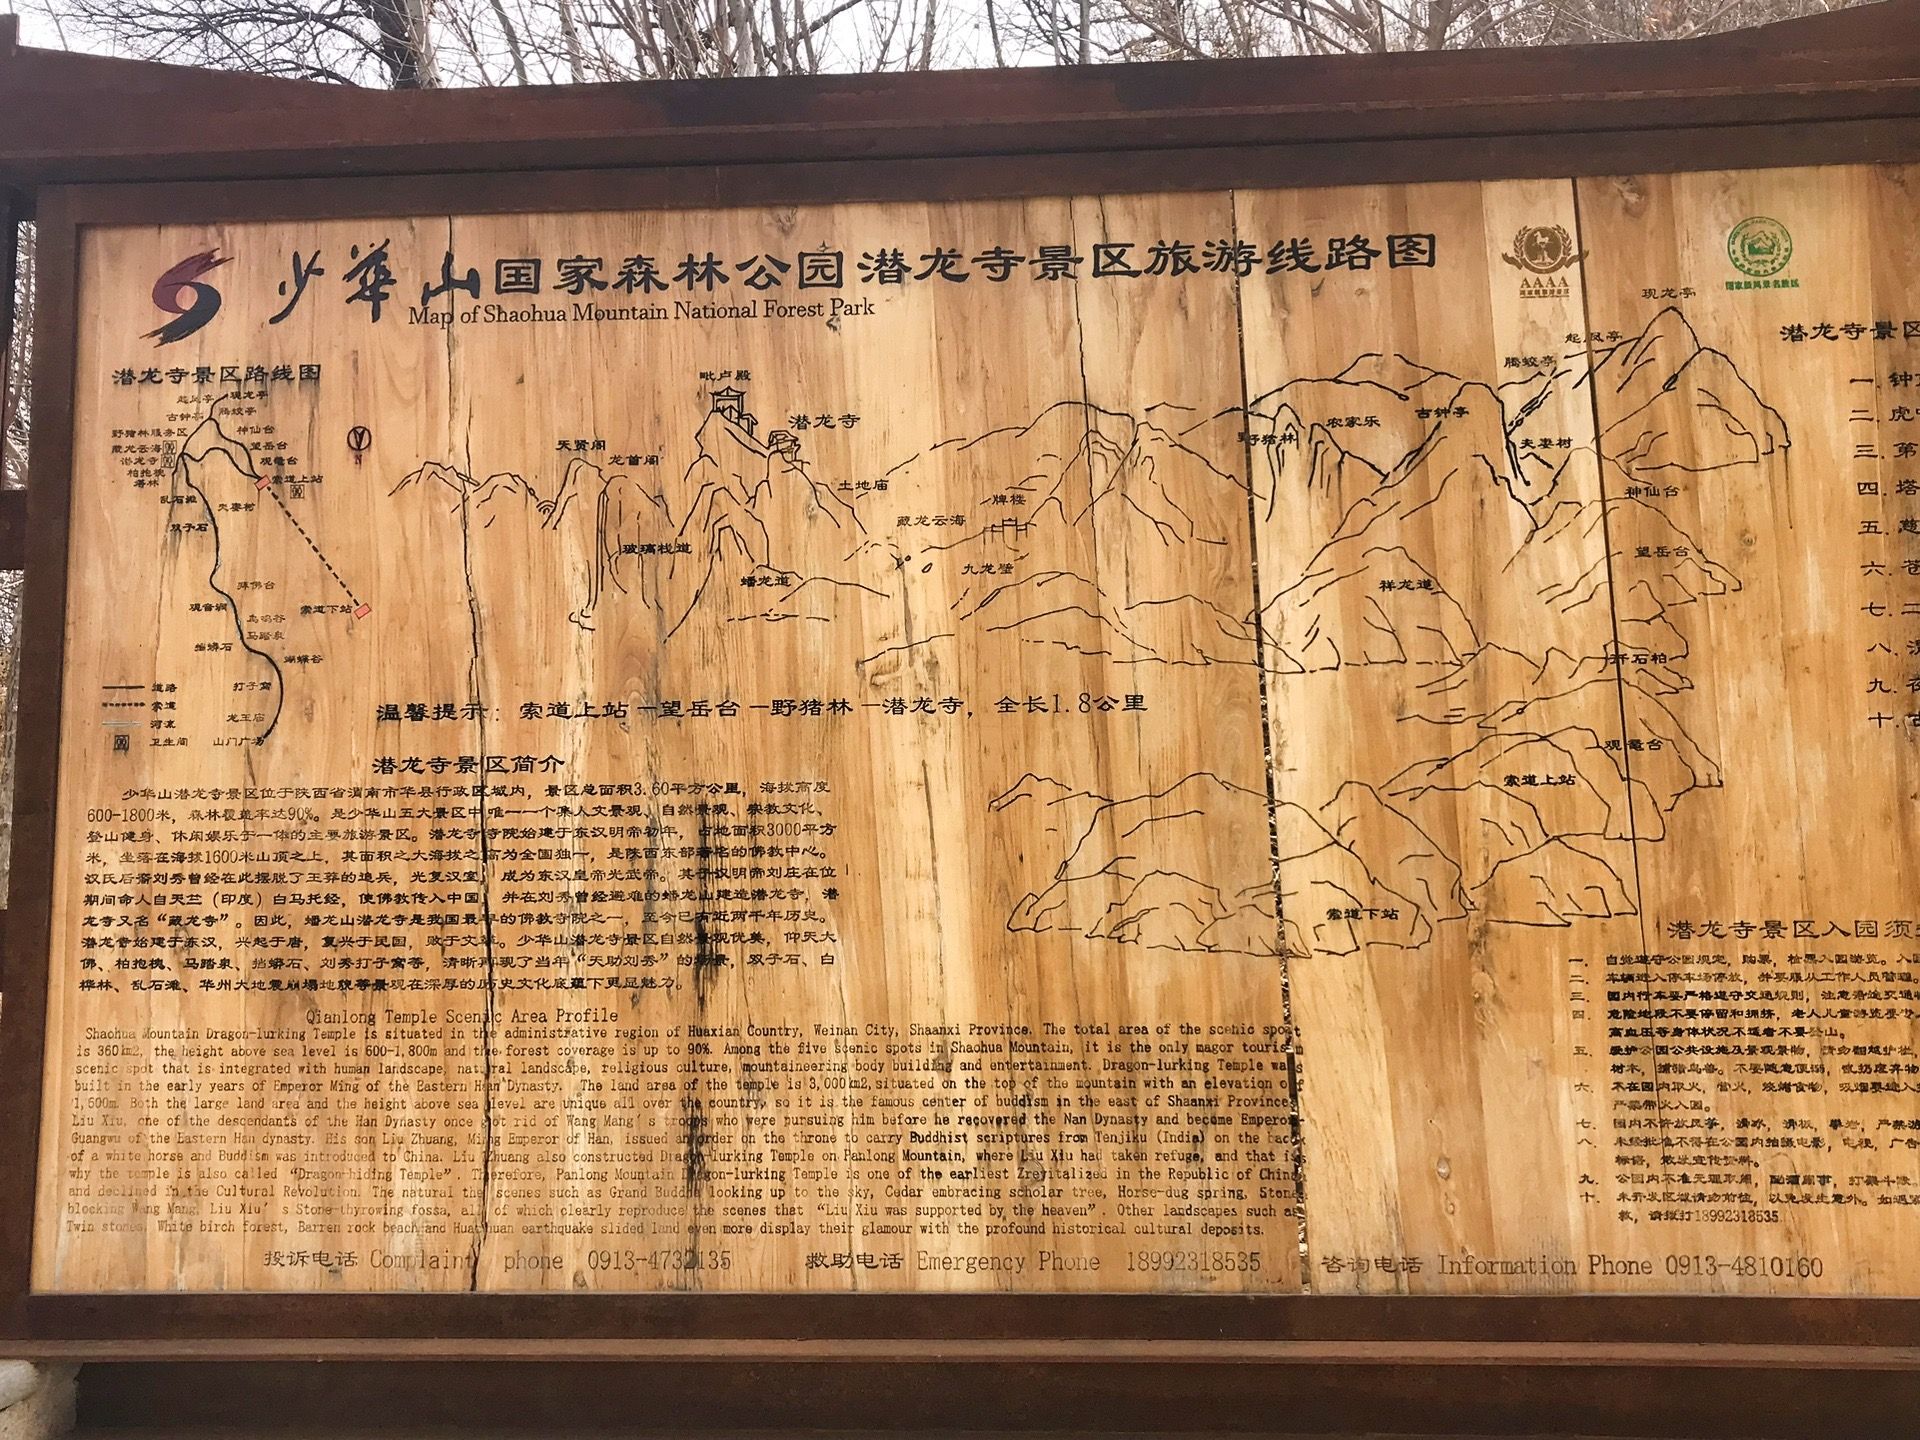 少华山国家森林公园潜龙寺景区旅游线路图
Map of Shaohua Mountain National Forest Park
AAAA
潜龙寺景区路线图
起凤亭
现龙亭
古钟亭
腾蛟亭
野猪林服务区
神仙台
藏龙云海
望岳台
潜龙寺
观鼋台
柏抱槐
塔林
索道上站
乱石滩
夫妻树
双子石
拜佛台
观音洞
索道下站
鸟鸣谷
马踏泉
挡蟒石
蝴蝶谷
道路
打子窝
索道
河流
龙王庙
卫生间
山门广场
N
毗卢殿
潜龙寺
天贤阁
龙首阁
土地庙
玻璃栈道
蟠龙道
藏龙云海
牌楼
九龙壁
野猪林
农家乐
古钟亭
腾蛟亭
起凤亭
现龙亭
夫妻树
神仙台
望岳台
祥龙道
开石柏
观鼋台
索道上站
索道下站
温馨提示：索道上站－望岳台－野猪林－潜龙寺，全长1.8公里
潜龙寺景区简介
少华山潜龙寺景区位于陕西省渭南市华县行政区域内，景区总面积3.60平方公里，海拔高度
600-1800米，森林覆盖率达90%。是少华山五大景区中唯一一个集人文景观、自然景观、宗教文化、
登山健身、休闲娱乐于一体的主要旅游景区。潜龙寺寺院始建于东汉明帝初年，占地面积3000平方
米，坐落在海拔1600米山顶之上，其面积之大海拔之高为全国独一，是陕西东部著名的佛教中心。
汉氏后裔刘秀曾经在此摆脱了王莽的追兵，光复汉室，成为东汉皇帝光武帝。其子汉明帝刘庄在位
期间命人自天竺（印度）白马托经，使佛教传入中国，并在刘秀曾经避难的蟠龙山建造潜龙寺，潜
龙寺又名“藏龙寺”。因此，蟠龙山潜龙寺是我国最早的佛教寺院之一，至今已有近两千年历史。
潜龙寺始建于东汉，兴起于唐，复兴于民国，败于文革。少华山潜龙寺景区自然景观优美，仰天大
佛、柏抱槐、马踏泉、挡蟒石、刘秀打子窝等，清晰再现了当年“天助刘秀”的场景，双子石、白
桦林、乱石滩、华州大地震崩塌地貌等景观在深厚的历史文化底蕴下更显魅力。
Qianlong Temple Scenic Area Profile
Shaohua Mountain Dragon-lurking Temple is situated in the administrative region of Huaxian Country, Weinan City, Shaanxi Province. The total area of the scenic spot
is 360km2, the height above sea level is 600-1,800m and the forest coverage is up to 90%. Among the five scenic spots in Shaohua Mountain, it is the only magor touris
scenic spot that is integrated with human landscape, natural landscape, religious culture, mountaineering body building and entertainment. Dragon-lurking Temple was
built in the early years of Emperor Ming of the Eastern Han Dynasty. The land area of the temple is 3,000km2,situated on the top of the mountain with an elevation of
1,600m. Both the large land area and the height above sea level are unique all over the country, so it is the famous center of buddism in the east of Shaanxi Province.
Liu Xiu, one of the descendants of the Han Dynasty once got rid of Wang Mang's troops who were pursuing him before he recovered the Nan Dynasty and become Emperor
Guangwu of the Eastern Han dynasty. His son Liu Zhuang, Ming Emperor of Han, issued an order on the throne to carry Buddhist scriptures from Tenjiku (India) on the back
of a white horse and Buddism was introduced to China. Liu Zhuang also constructed Dragon-lurking Temple on Panlong Mountain, where Liu Xiu had taken refuge, and that is
why the temple is also called “Dragon-hiding Temple”. Therefore, Panlong Mountain Dragon-lurking Temple is one of the earliest Zrevitalized in the Republic of China
and declined in the Cultural Revolution. The natural the scenes such as Grand Buddha looking up to the sky, Cedar embracing scholar tree, Horse-dug spring, Stone
blocking Wang Mang, Liu Xiu's Stone-thyrowing fossa, all of which plearly reproduce the scenes that “Liu Xiu was supported by the heaven”. Other landscapes such as
Twin stones, White birch forest, Barren rock beach and Huashuan earthquake slided land even more display their glamour with the profound historical cultural deposits.
潜龙寺景区
一．钟
二．虎
三．第
四．塔
五．慈
六．苍
七．二
八．
九．夜
十．古
潜龙寺景区入园须
一、自觉遵守公园规定，购票，检票入园游览。入园
二、车辆进入停车场停放，并要服从工作人员管理。
三、园内行车要严格遵守交通规则，注意沿途交通
四、危险地段不要停留和拥挤，老人儿童游览要
高血压等身体状况不适者不要登山。
五、爱护公园公共设施及景观景物，请勿翻越护栏，
树木，捕猎鸟兽。不要随意便溺，或扔废弃物
六、不在园内取火，营火，烧烤食物，吸烟要进入
严禁带火入园。
七、园内不许放风筝，滑冰，滑板，攀岩，严禁游
八、未经批准不得在公园内拍摄电影，电视，广告
标语，散发宣传资料。
九、公园内不准无理取闹，酗酒闹事，打架斗殴
十、未开发区域请勿前往，以免发生意外。如遇
救，请拨打18992318535
投诉电话 Complaint phone 0913-4732135 救助电话 Emergency Phone 18992318535 咨询电话 Information Phone 0913-4810160